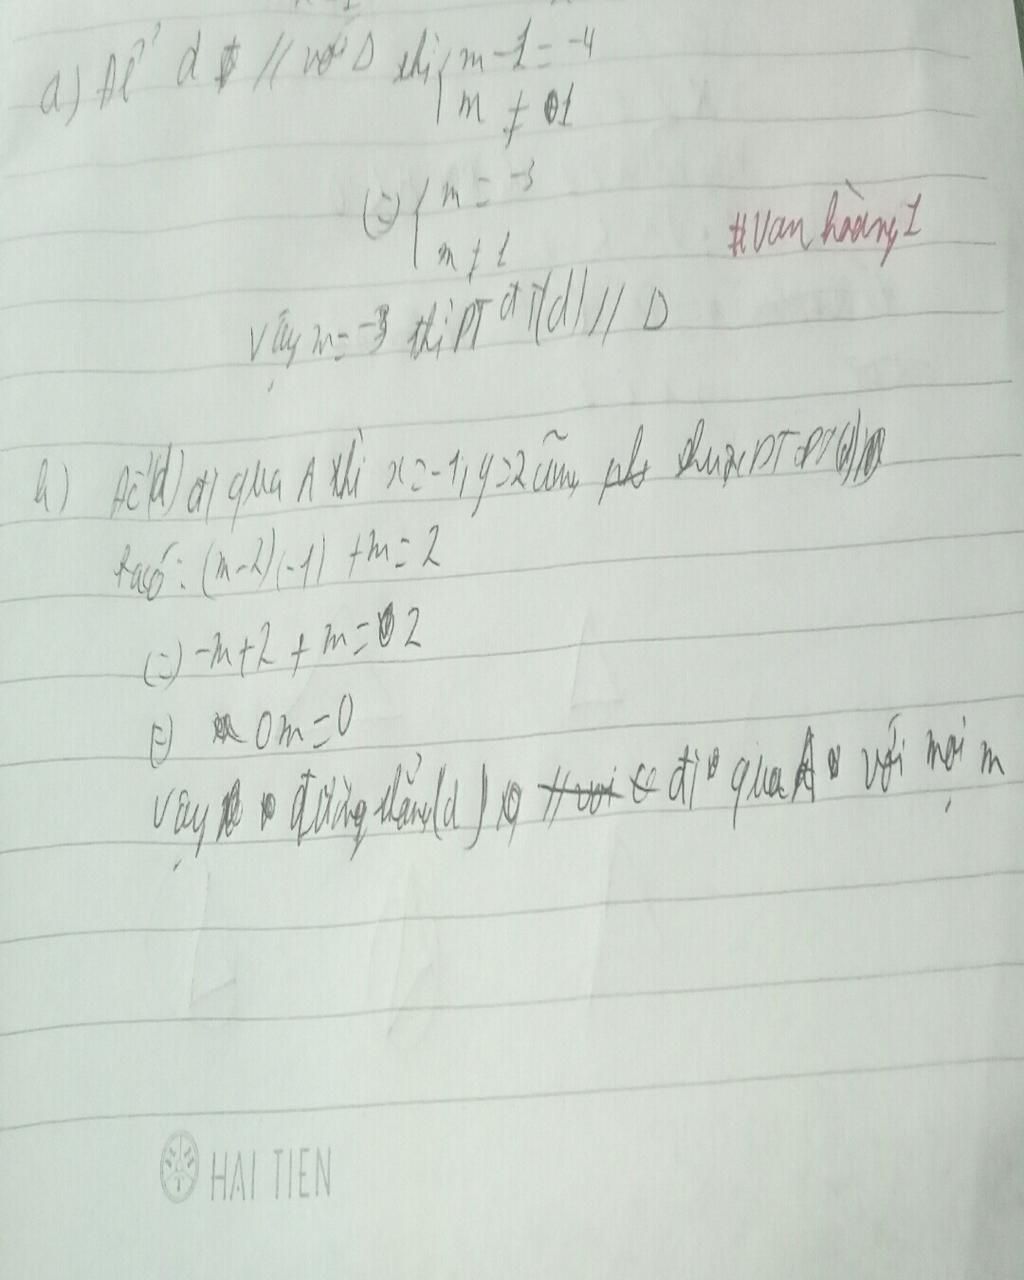 a) Để d // với D thì { m-1 = -4
m ≠ 1
(=) { m = -3
m ≠ 1
#Van hoàng 1
Vậy m = -3 thì PT đt (d) // D
Để (d) đi qua A thì x = -1, y = 2 thuộc PT ĐT (d)
ta có: (m-2)(-1) + m = 2
(=) -m+2 + m = 2
(=) 0m = 0
Vậy đường thẳng (d) đi qua A với mọi m
HAI TIEN